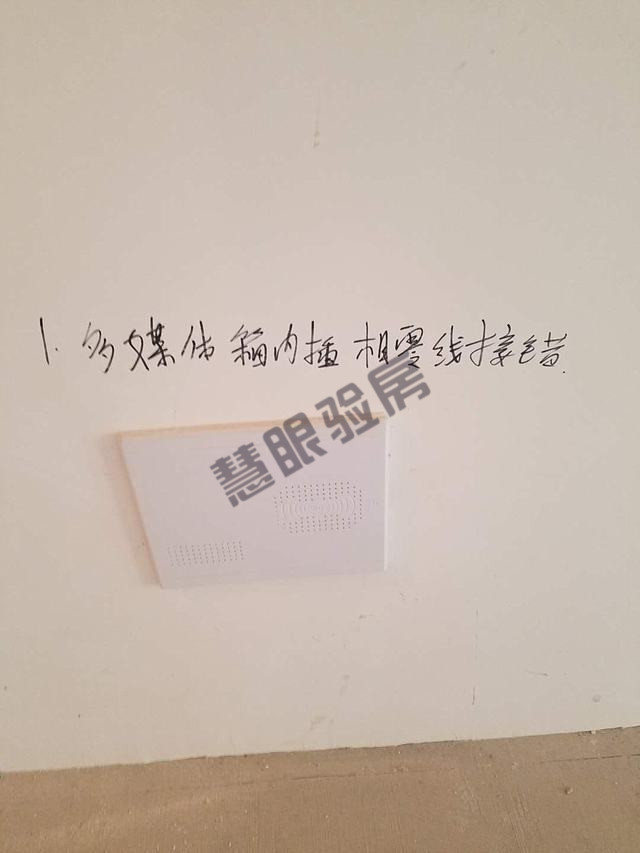 1. 多媒体箱内插相零线接错.
慧眼验房